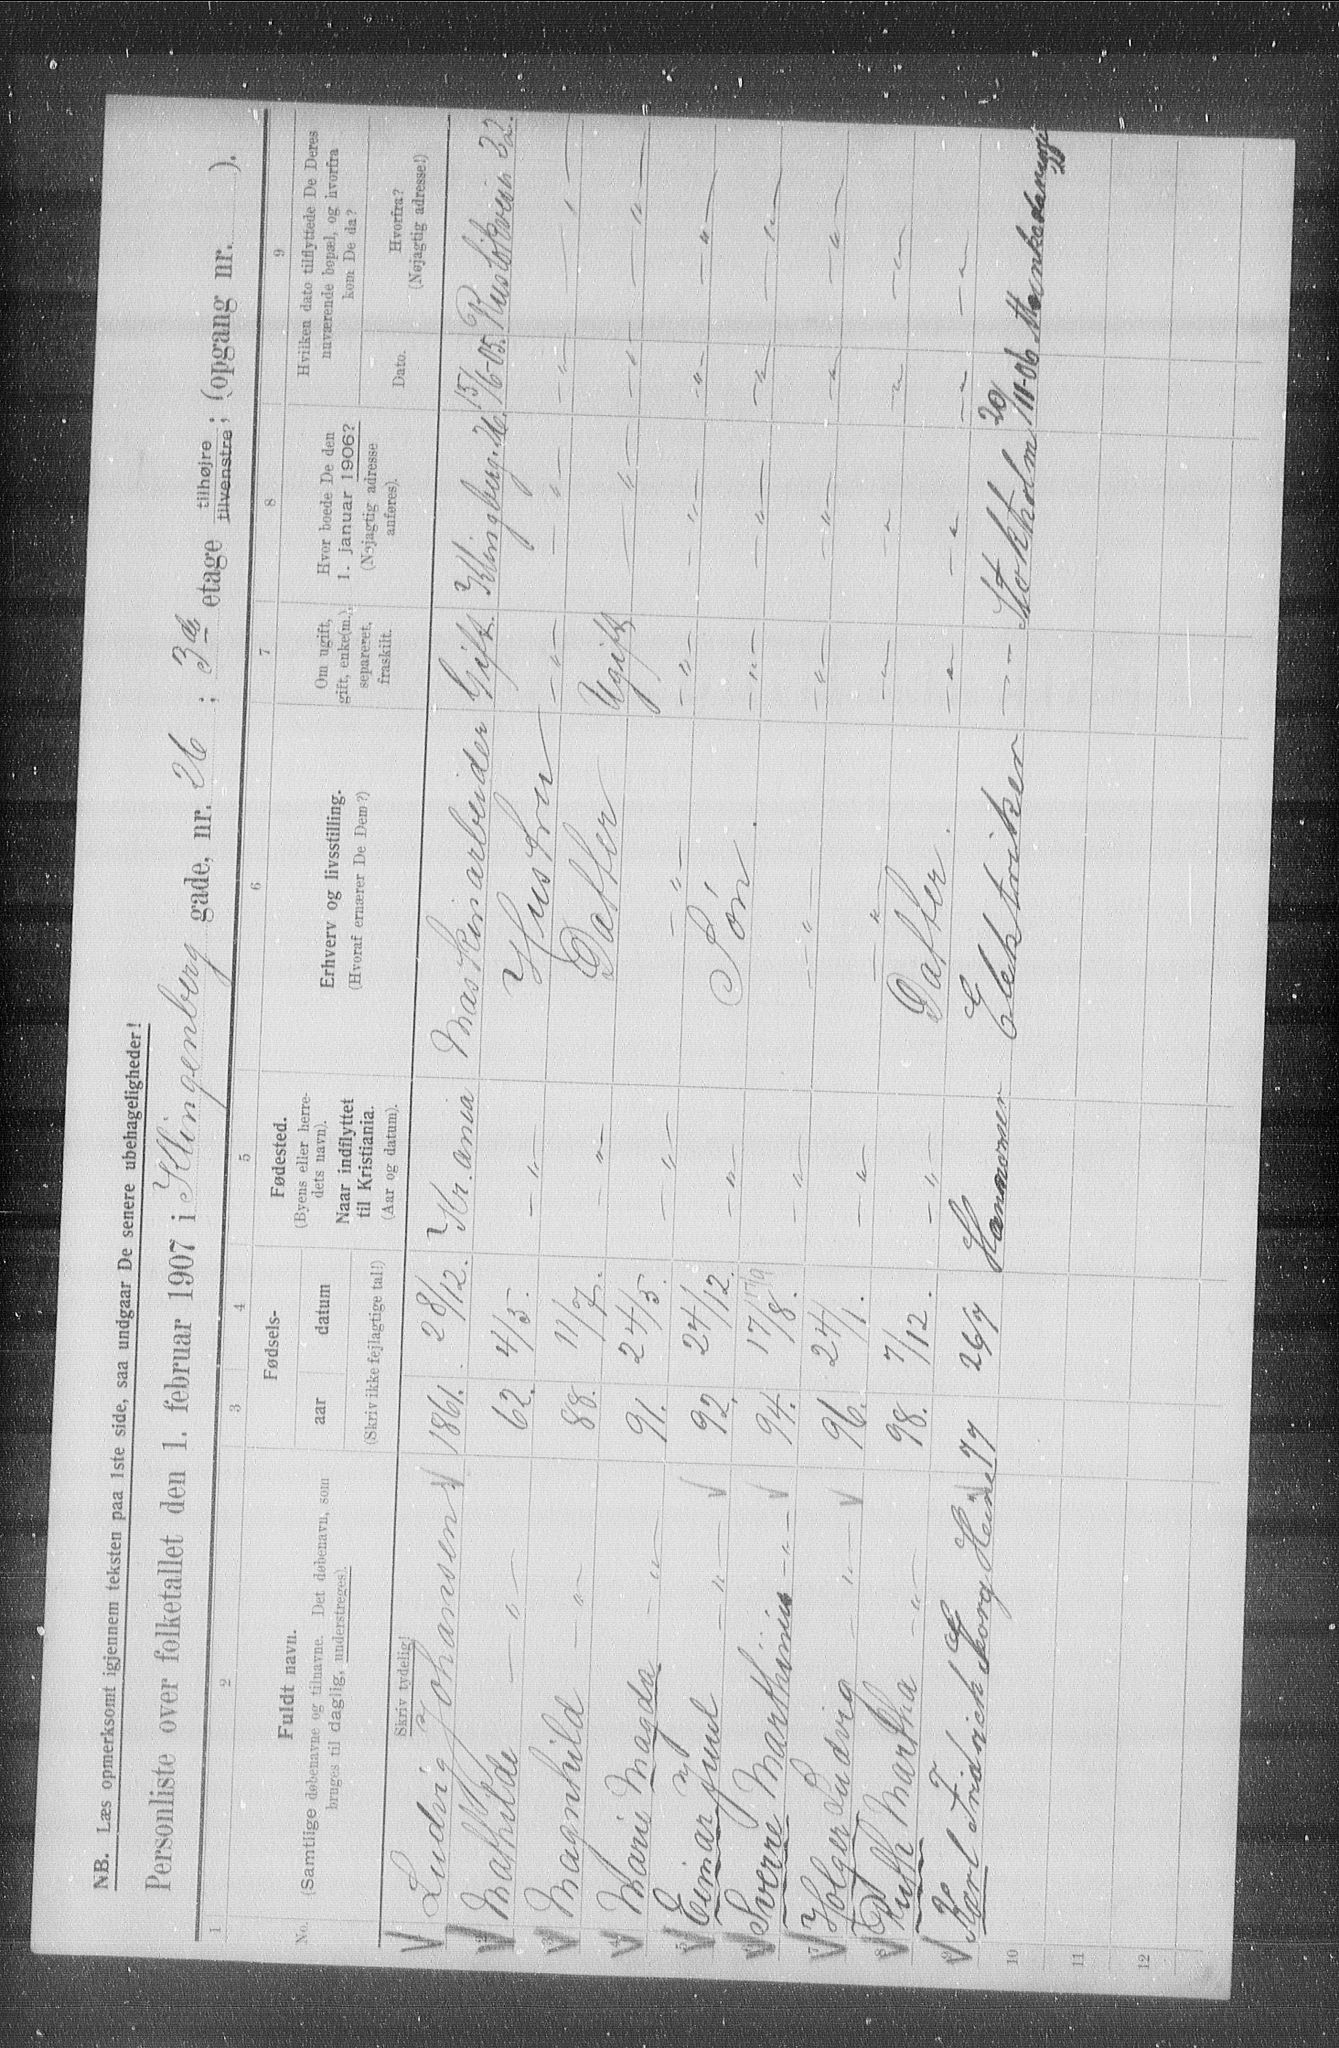 NB. Læs opmerksomt igjennem teksten paa 1ste side, saa undgaar De senere ubehageligheder!
Personliste over folketallet den 1. februar 1907 i Klingenberg gade, nr. 26 ; 3de etage tilhøjre ; (opgang nr. ).
tilvenstre
1 2 3 4 5 6 7 8 9
No. Fuldt navn.
(Samtlige døbenavne og tilnavne. Det døbenavn, som
bruges til daglig, understreges).
Skriv tydelig!
Fødsels-
aar datum
(Skriv ikke fejlagtige tal!)
Fødested.
(Byens eller herre-
dets navn).
Naar indflyttet
til Kristiania.
(Aar og datum).
Erhverv og livsstilling.
(Hvoraf ernærer De Dem?)
Om ugift,
gift, enke(m.),
separeret,
fraskilt.
Hvor boede De den
1. januar 1906?
(Nøjagtig adresse
anføres).
Hvilken dato tilflyttede De Deres
nuværende bopæl, og hvorfra
kom De da?
Dato. Hvorfra?
(Nøjagtig adresse!)
Ludvig Johansen 1861. 28/12. Kr.ania Maskinarbeider Gift. Klingbg. 26. 15/6-05. Rusløkvein 32.
2 Mathilde — " — 62. 4/5. — " — Hustru — " — — " — — " — — " —
3 Magnhild — " — 88. 11/7. — " — Datter Ugift — " — — " — — " —
4 Marie Magda — " — 91. 24/5. — " — — " — — " — — " — — " — — " —
5 Einar Juul — " — 92. 24/12. — " — Søn — " — — " — — " — — " —
6 Sverre Marthinius — " — 94. 17/8. 17/9 — " — — " — — " — — " — — " — — " —
7 Holger Ludvig — " — 96. 24/1. — " — — " — — " — — " — — " — — " —
8 Ruth Martha — " — 98. 7/12. — " — Datter. — " — — " — — " — — " —
9 Karl Fridrich Georg Heine 77 26/7 Hannover Elektriker — — Stokholm 20/11-06
10
11
12